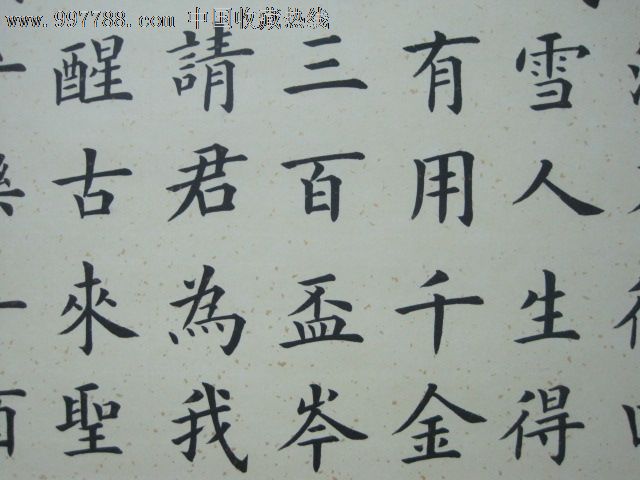 www.997788.com 中国收藏热线
雪人生得
有用千金
三百盃岑
請君為我
醒古來聖